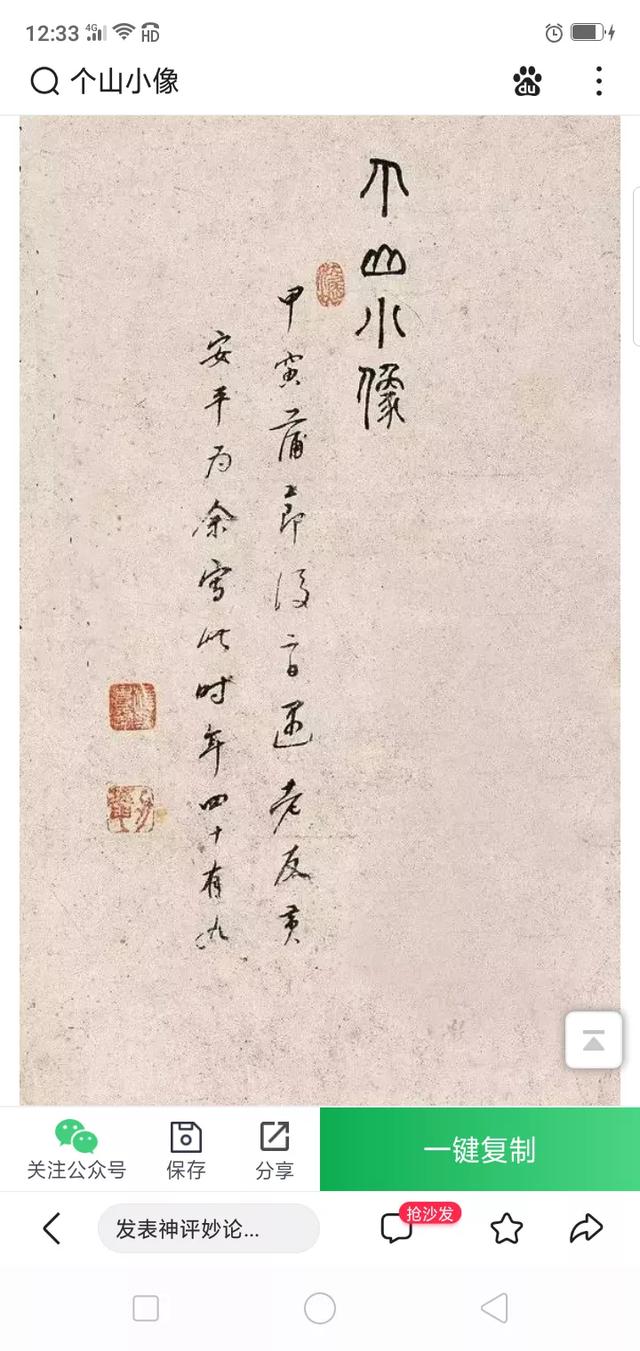 12:33 4G HD
个山小像
du
个山小像
甲寅蒲節後二日遇老友黃
安平为余寫此时年四十有九
关注公众号
保存
分享
一键复制
发表神评妙论...
抢沙发